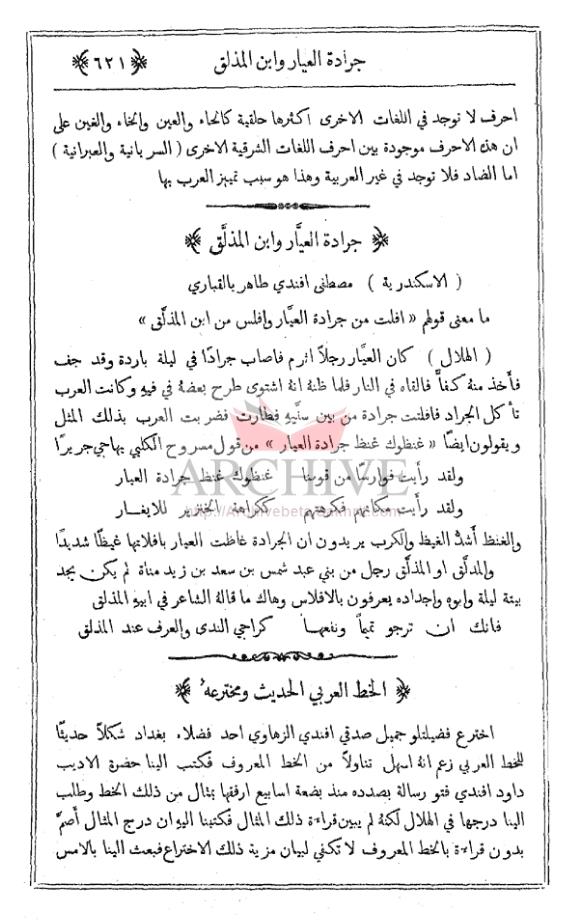 جرادة العيار وابن المذلق ﴿٦٢١﴾
احرف لا توجد في اللغات الاخرى اكثرها حلقية كالحاء والعين والخاء والغين على
ان هذه الاحرف موجودة بين احرف اللغات الشرقية الاخرى ( السريانية والعبرانية )
اما الضاد فلا توجد في غير العربية وهذا هو سبب تمييز العرب بها
﴿ جرادة العيَّار وابن المذلَّق ﴾
( الاسكندرية ) مصطفى افندي طاهر بالقباري
ما معنى قولهم « افلت من جرادة العيَّار وإفلس من ابن المذلَّق »
( الهلال ) كان العيَّار رجلاً اثرم فاصاب جرادًا في ليلة باردة وقد جف
فأخذ منهُ كفاً فالقاه في النار فلما ظنهُ انهُ اشتوى طرح بعضهُ في فيهِ وكانت العرب
تأكل الجراد فافلتت جرادة من بين سنَّيهِ فطارت فضربت العرب بذلك المثل
ويقولون ايضًا « غنظوك غنظ جرادة العيار » من قول مسروح الكلبي يهاجي جريرًا
ولقد رأيت فوارسًا من قومنا غنظوك غنظ جرادة العيار
ولقد رأيت مكانهم فكرهتهم ككراهة الخنزير للايغار
ARCHIVE
والغنظ أشدُّ الغيظ والكرب يريدون ان الجرادة غاظت العيار بافلاتها غيظًا شديدًا
والمدلَّق او المذلَّق رجل من بني عبد شمس بن سعد بن زيد مناة لم يكن يجد
بيتة ليلة وابوه واجداده يعرفون بالافلاس وهاك ما قالهُ الشاعر في ابيهِ المذلق
فانك ان ترجو تميماً ونفعها كراجي الندى والعرف عند المذلق
﴿ الخط العربي الحديث ومخترعهُ ﴾
اخترع فضيلتلو جميل صدقي افندي الزهاوي احد فضلاء بغداد شكلاً حديثًا
للخط العربي زعم انهُ اسهل تناولاً من الخط المعروف فكتب الينا حضرة الاديب
داود افندي فتو رسالة بصدده منذ بضعة اسابيع ارفقها بمثال من ذلك الخط وطلب
الينا درجها في الهلال لكنهُ لم يبين قراءة ذلك المثال فكتبنا اليهِ ان درج المثال أصمَّ
بدون قراءة بالخط المعروف لا تكفي لبيان مزية ذلك الاختراع فبعث الينا بالامس